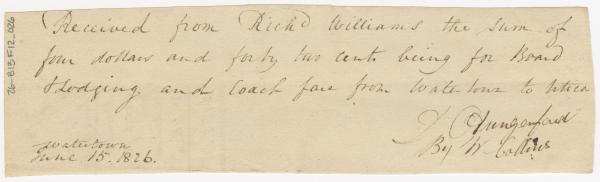 Received from Richd Williams the sum of
four dollars and forty two cents being for Board
& Lodging and Coach fare from Watertown to Utica
D Hungerford
By W. Collins
Watertown
June 15. 1826.
26-B13F12_026